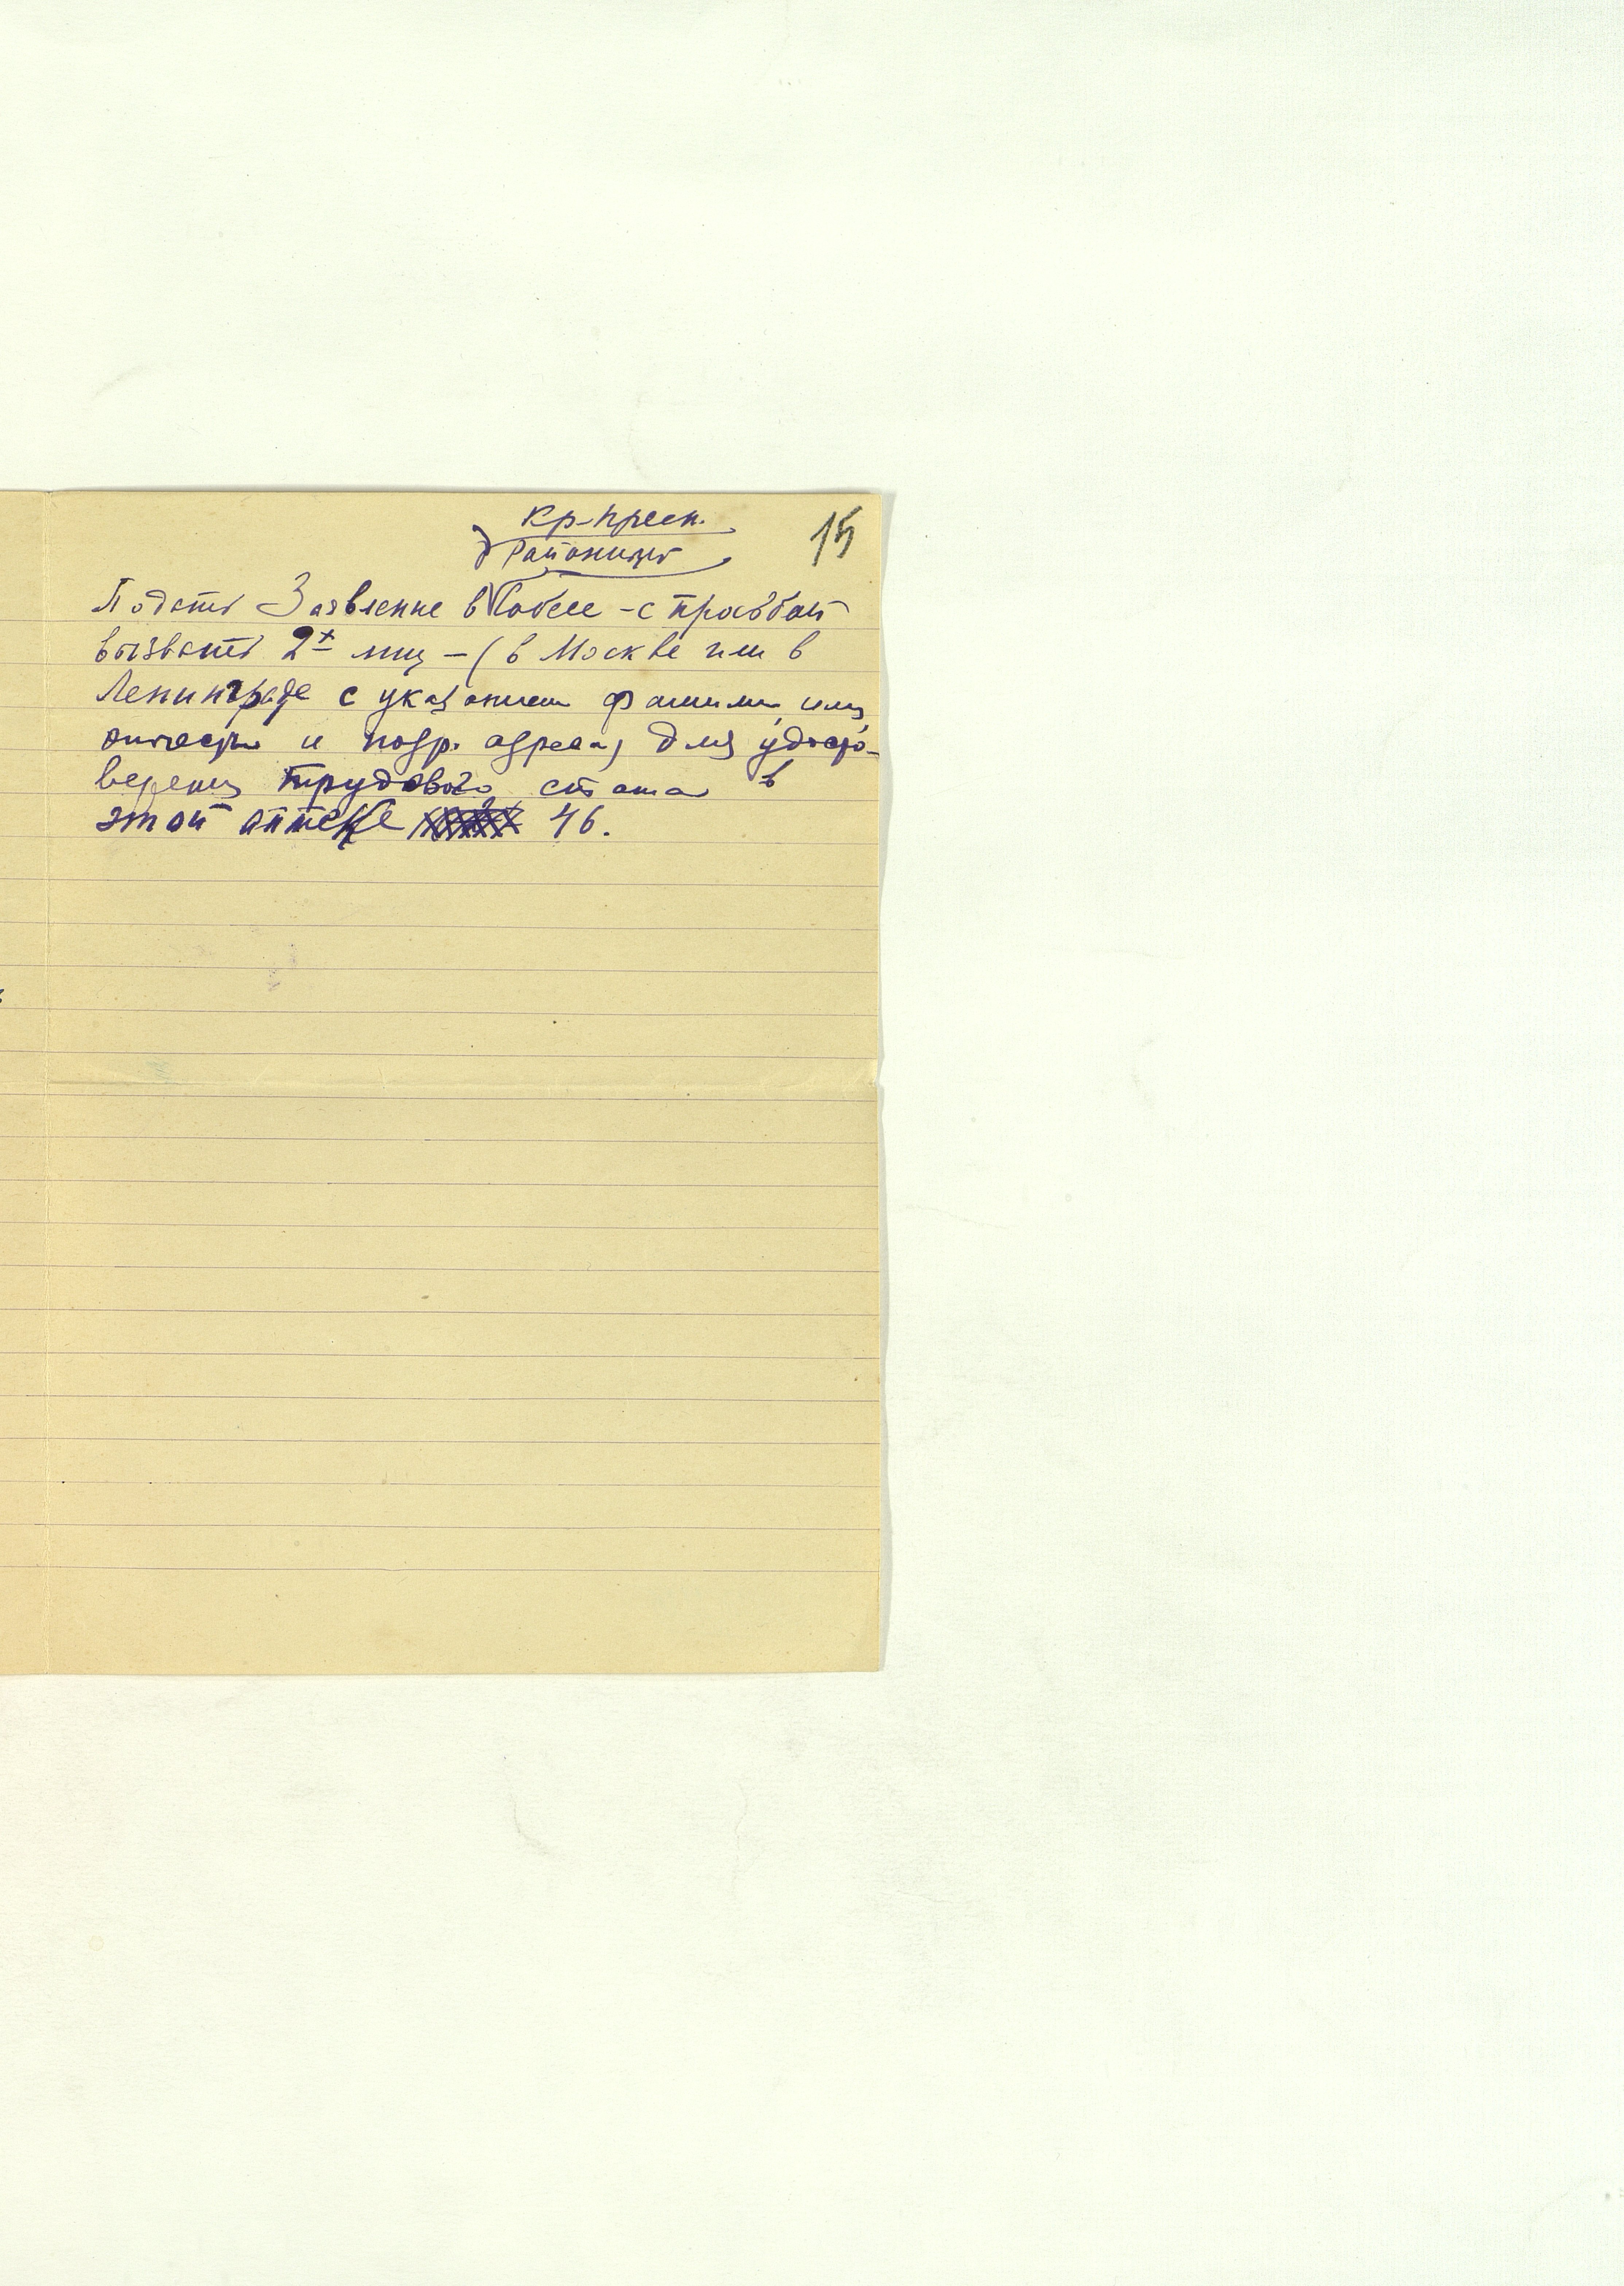 Кр-Пресн.
15
Районный
Подать Заявление в Собес - с просьбой
вызвать 2х лиц - (в Москве или в
Ленинграде с указанием фамилии, имя,
отчества и подр. адреса) для удосто-
верения трудового стажа в
этой аптеке 46.